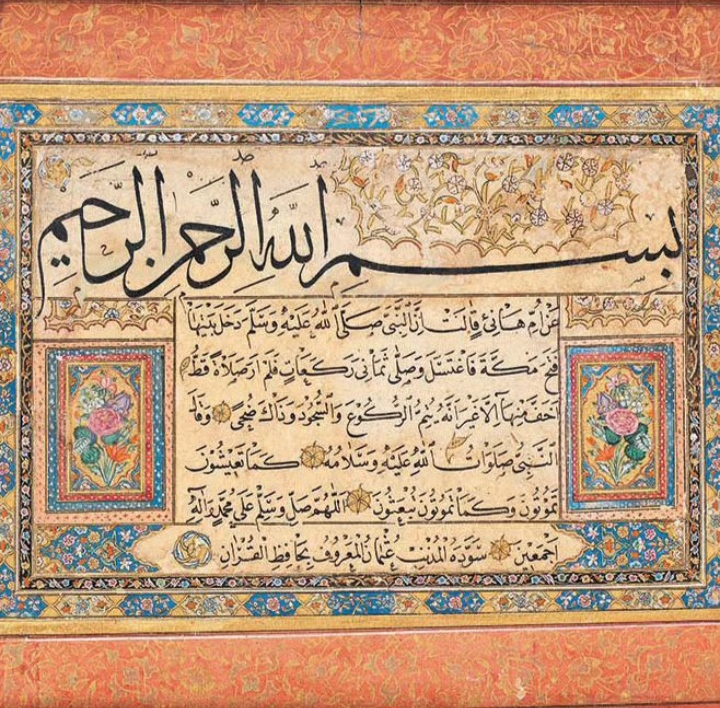 بسم الله الرحمن الرحيم
عن ام هانئ قالت ان النبي صلى الله عليه وسلم دخل بيتها
فتح مكة فاغتسل وصلى ثماني ركعات فلم ار صلاة قط
اخف منها الا غير انه يتم الركوع والسجود وذاك ضحى وقال
النبي صلوات الله عليه وسلامه كما تعيشون
تموتون وكما تموتون تبعثون اللهم صل وسلم على محمد وآله
اجمعين سوده المذنب عثمان المعروف بحافظ القرآن